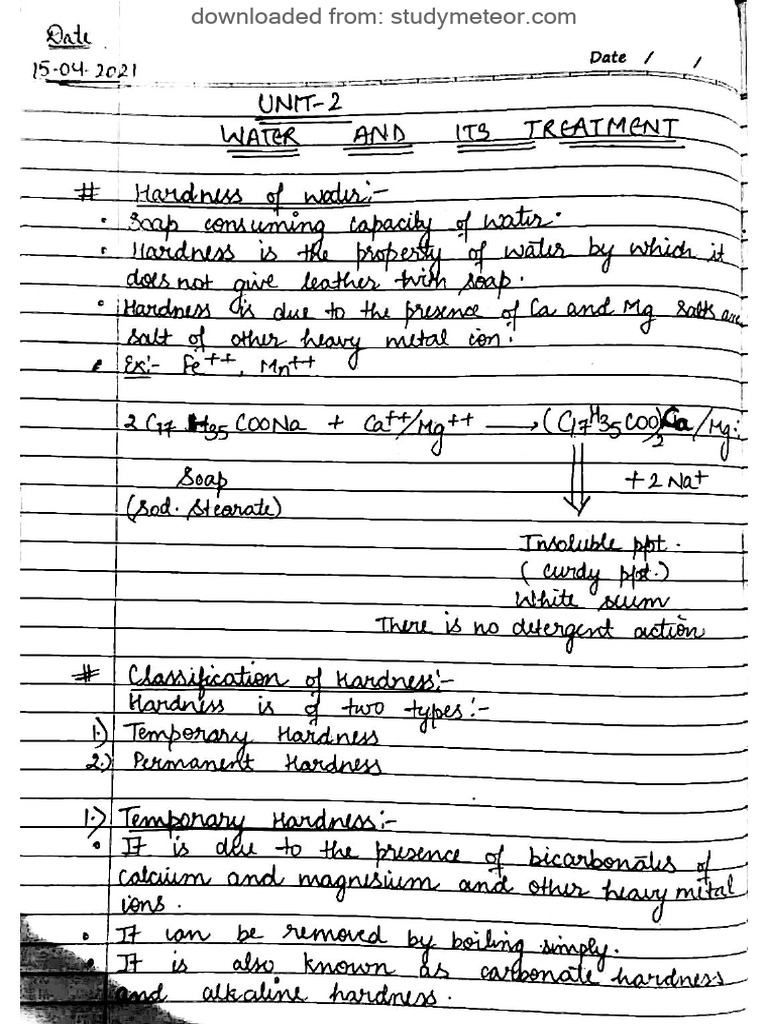 downloaded from: studymeteor.com
Date
15-04-2021
Date / /
UNIT-2
WATER AND ITS TREATMENT
# Hardness of water:-
• Soap consuming capacity of water.
• Hardness is the property of water by which it
does not give leather with soap.
• Hardness is due to the presence of Ca and Mg salts and
salt of other heavy metal ion.
• Ex:- Fe++, Mn++
2 C17 H35 COONa + Ca++/Mg++ → (C17H35COO)2 Ca/Mg
Soap + 2Na+
(Sod. Stearate)
Insoluble ppt.
(curdy ppt.)
White scum
There is no detergent action
# Classification of Hardness:-
Hardness is of two types:-
1.) Temporary Hardness
2.) Permanent Hardness
1.) Temporary Hardness:-
• It is due to the presence of bicarbonates of
calcium and magnesium and other heavy metal
ions.
• It can be removed by boiling simply.
• It is also known as carbonate hardness
and alkaline hardness.